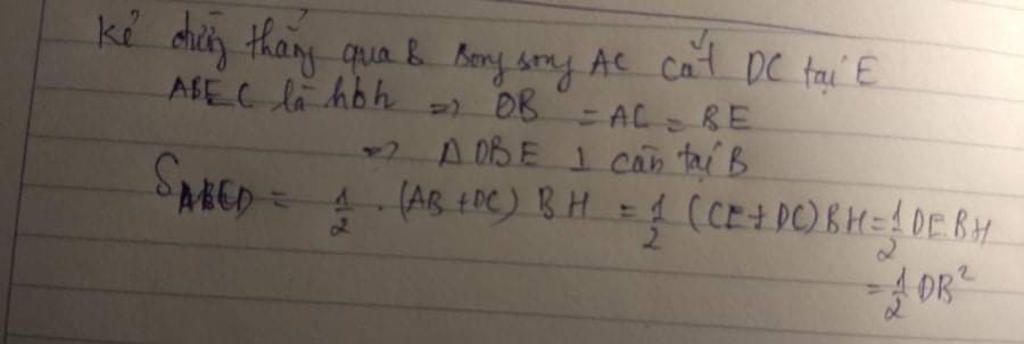 Kẻ đường thẳng qua B song song AC cắt DC tại E
ABEC là hbh => DB = AC = BE
=> Δ DBE ⊥ cân tại B
S_ABCD = 1/2 . (AB + DC) BH = 1/2 (CE + DC) BH = 1/2 DE.BH
= 1/2 DB²